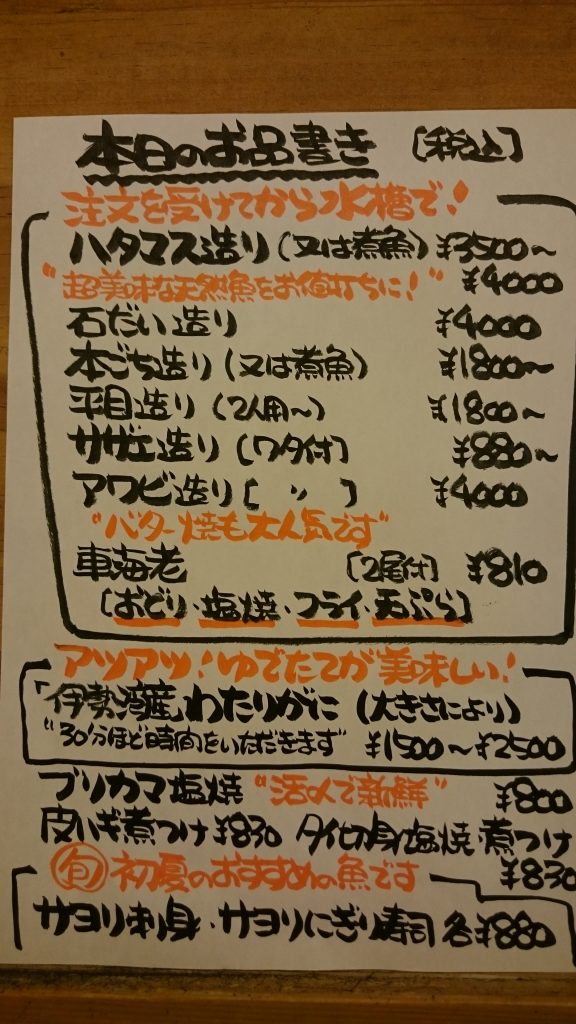 本日のお品書き [税込]
注文を受けてから水槽で!
ハタマス造り(又は煮魚) ¥3500〜
¥4000
"超美味な天然魚をお値打ちに!"
石だい造り ¥4000
本ごち造り(又は煮魚) ¥1800〜
平目造り(2人用〜) ¥1800〜
サザエ造り[ワタ付] ¥880〜
アワビ造り[ 〃 ] ¥4000
"バター焼も大人気です"
車海老 [2尾付] ¥810
[おどり・塩焼・フライ・天ぷら]
アツアツ!ゆでたてが美味しい!
「伊勢湾産」わたりがに(大きさにより)
"30分ほど時間をいただきます" ¥1500〜¥2500
ブリカマ塩焼 "活〆で新鮮" ¥800
皮ハギ煮つけ ¥830 タイ切身塩焼・煮つけ
¥830
旬 初夏のおすすめの魚です
サヨリ刺身・サヨリにぎり寿司 各¥880